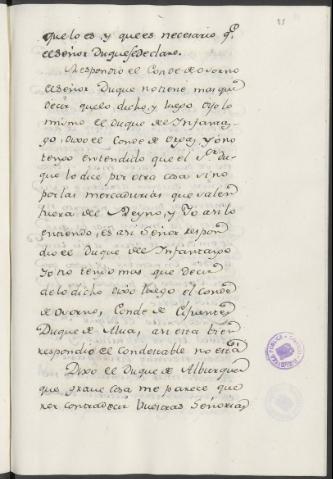 que lo es, y que es necesario q.e
el Señor Duque declare.
Respondió el Conde de Osorno
el Señor Duque no tiene mas que
decir que lo dicho, y luego dijo lo
mismo el Duque de Infantaz-
go, dixo el Conde de Orgaz, yo no
tengo entendido que el S.or Du-
que lo dice por otra cosa sino
por las mercadurias que salen
fuera del Reyno, y Yo asi lo
entiendo, es asi Señor respon-
dio el Duque de Infantazgo
Yo no tengo mas que decir
de lo dicho dixo luego el Conde
de Osorno, Conde de Cifuentes
Duque de Alva, asi esta bien
respondió el Condestable no está
Dixo el Duque de Alburquer
que, grave cosa me parece que-
rer contradecir Vuestras Señorias